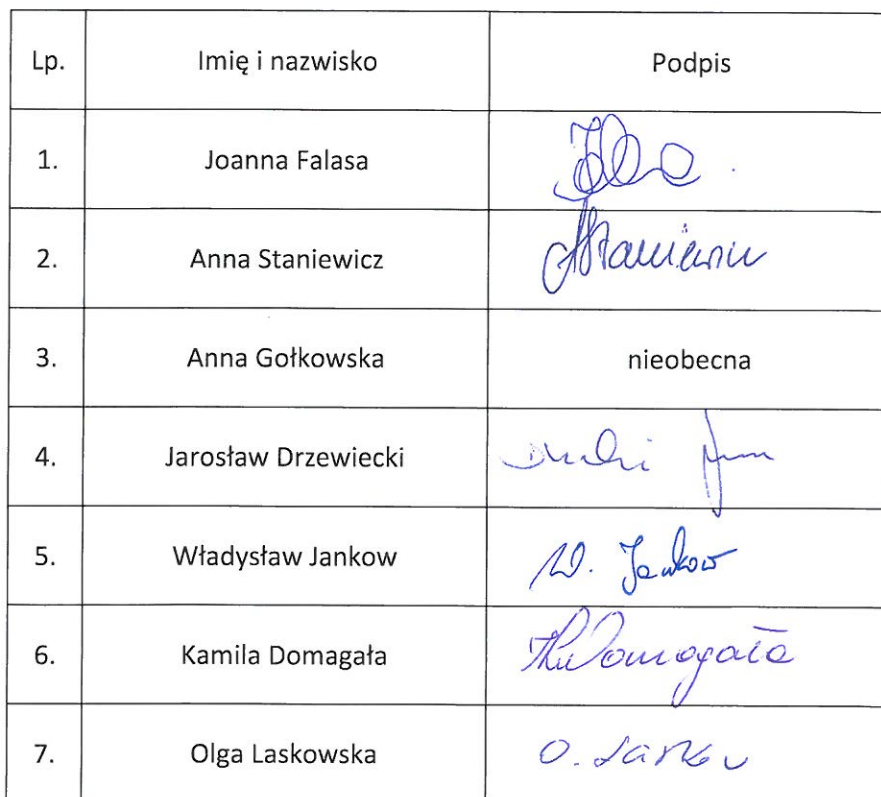 Lp. Imię i nazwisko Podpis
1. Joanna Falasa
2. Anna Staniewicz AStaniewicz
3. Anna Gołkowska nieobecna
4. Jarosław Drzewiecki
5. Władysław Jankow W. Jankow
6. Kamila Domagała Domagała
7. Olga Laskowska O. Lasków